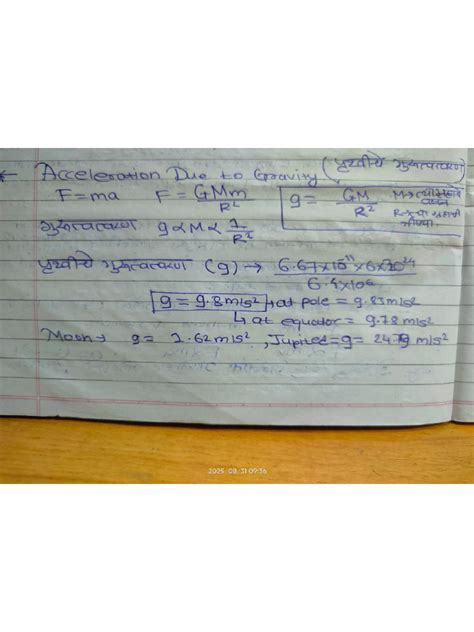 Acceleration Due to Gravity (पृथ्वीचे गुरुत्वत्वरण)
F=ma F = GMm/R² g = GM/R² M→
गुरुत्वत्वरण g∝M∝ 1/R²
पृथ्वीचे गुरुत्वत्वरण (g) → 6.67×10¹¹×6×10²⁴/6.4×10⁶
g = 9.8m/s² → at pole = 9.83m/s²
↳ at equator = 9.78 m/s²
Moon → g = 1.62m/s², Jupited=g= 24.79 m/s²
2025.08.31 09:36